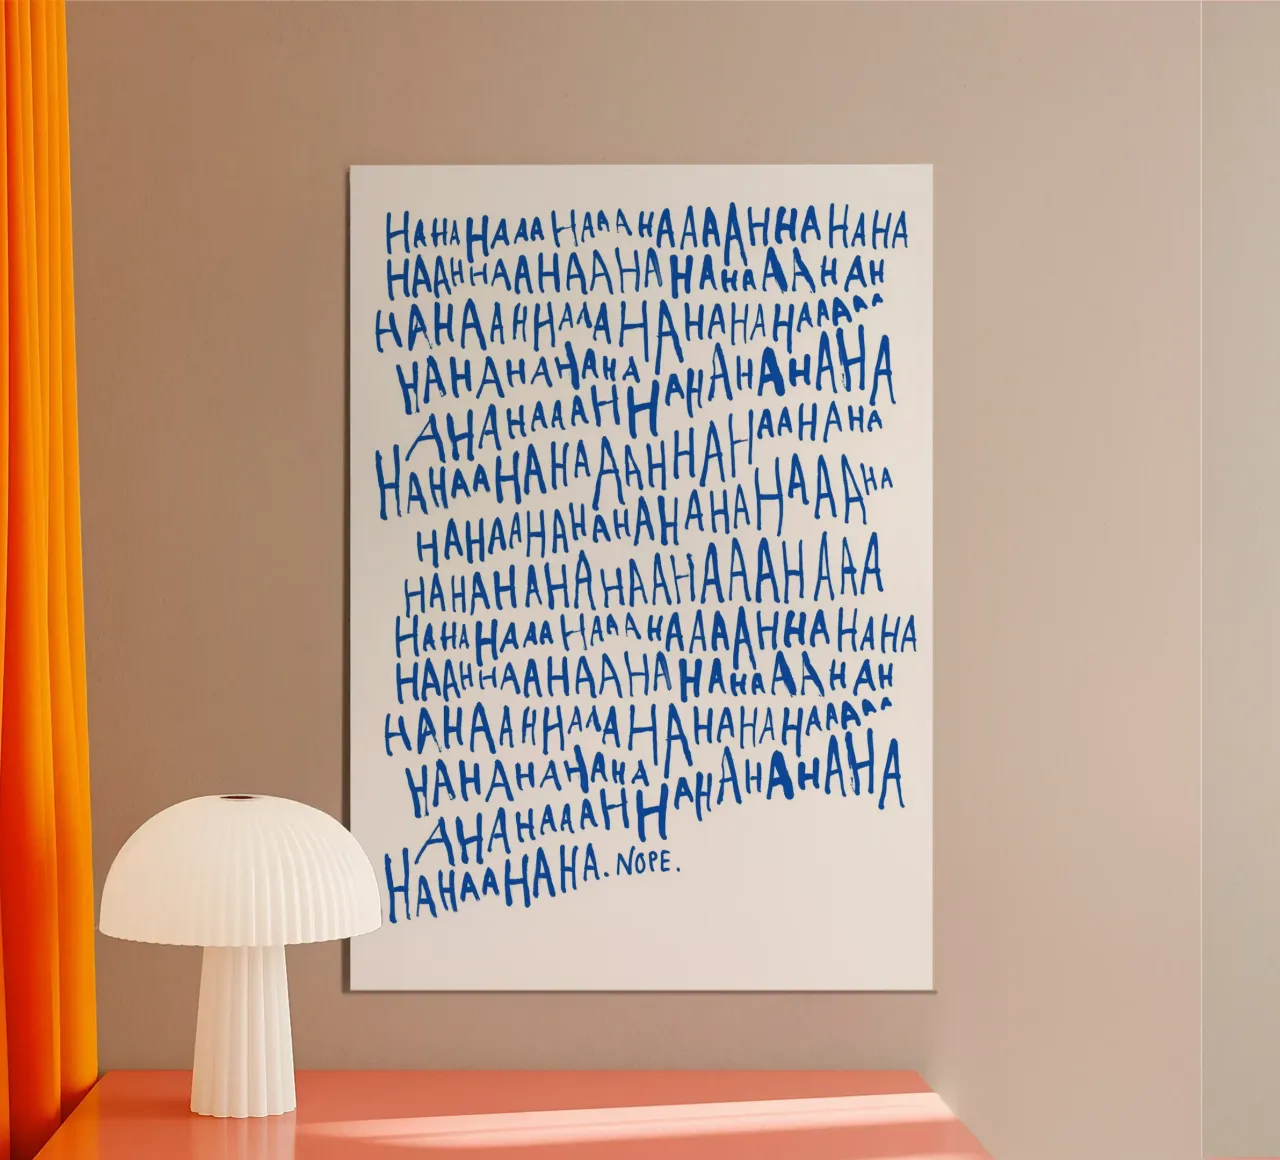 HAHAHAAAHAAAHAAAAHHAHAHA
HAAHHAAHAAHAHAHAAAHAH
HAHAAHHAAAHAHAHAHAAAAA
HAHAHAHAHAHAHAHAHAHA
AHAHAAAHHAHAHAHAHA
HAHAAHAHAAAHHAHAAHAHA
HAHAAHAHAHAHAHAHAAAHA
HAHAHAHAHAAHAAAHAAA
HAHAHAAAHAAAHAAAAHHAHAHA
HAAHHAAHAAHAHAHAAAHAH
HAHAAHHAAAHAHAHAHAAAAA
HAHAHAHAHAHAHAHAHAHA
AHAHAAAHHAHAHAHAHA
HAHAAHAHA. NOPE.